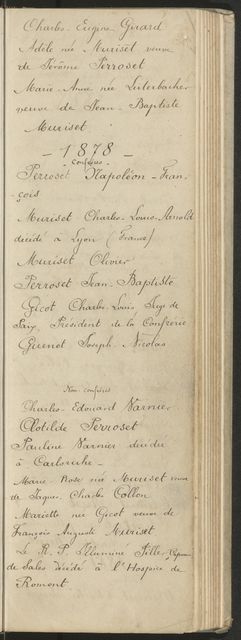 Charles-Eugène Girard
Adèle née Muriset veuve
de Jérôme Perroset
Marie-Anne née Luterbacher
veuve de Jean-Baptiste
Muriset
- 1878 -
Confrères
Perroset Napoléon-Fran-
çois
Muriset Charles-Louis-Arnold
décédé à Lyon (France)
Muriset Olivier
Perroset Jean-Baptiste
Gicot Charles-Louis, Juge de
Paix, Président de la Confrérie
Guenot Joseph-Nicolas
Non-confrères
Charles-Edouard Varnier
Clotilde Perroset
Pauline Varnier décédée
à Carlsruhe-
Marie Rose née Muriset veuve
de Jaques Charles Collon
Mariette née Gicot veuve de
François Auguste Muriset
Le R. P. Illumine
de Sales décédé à l'Hospice de
Romont